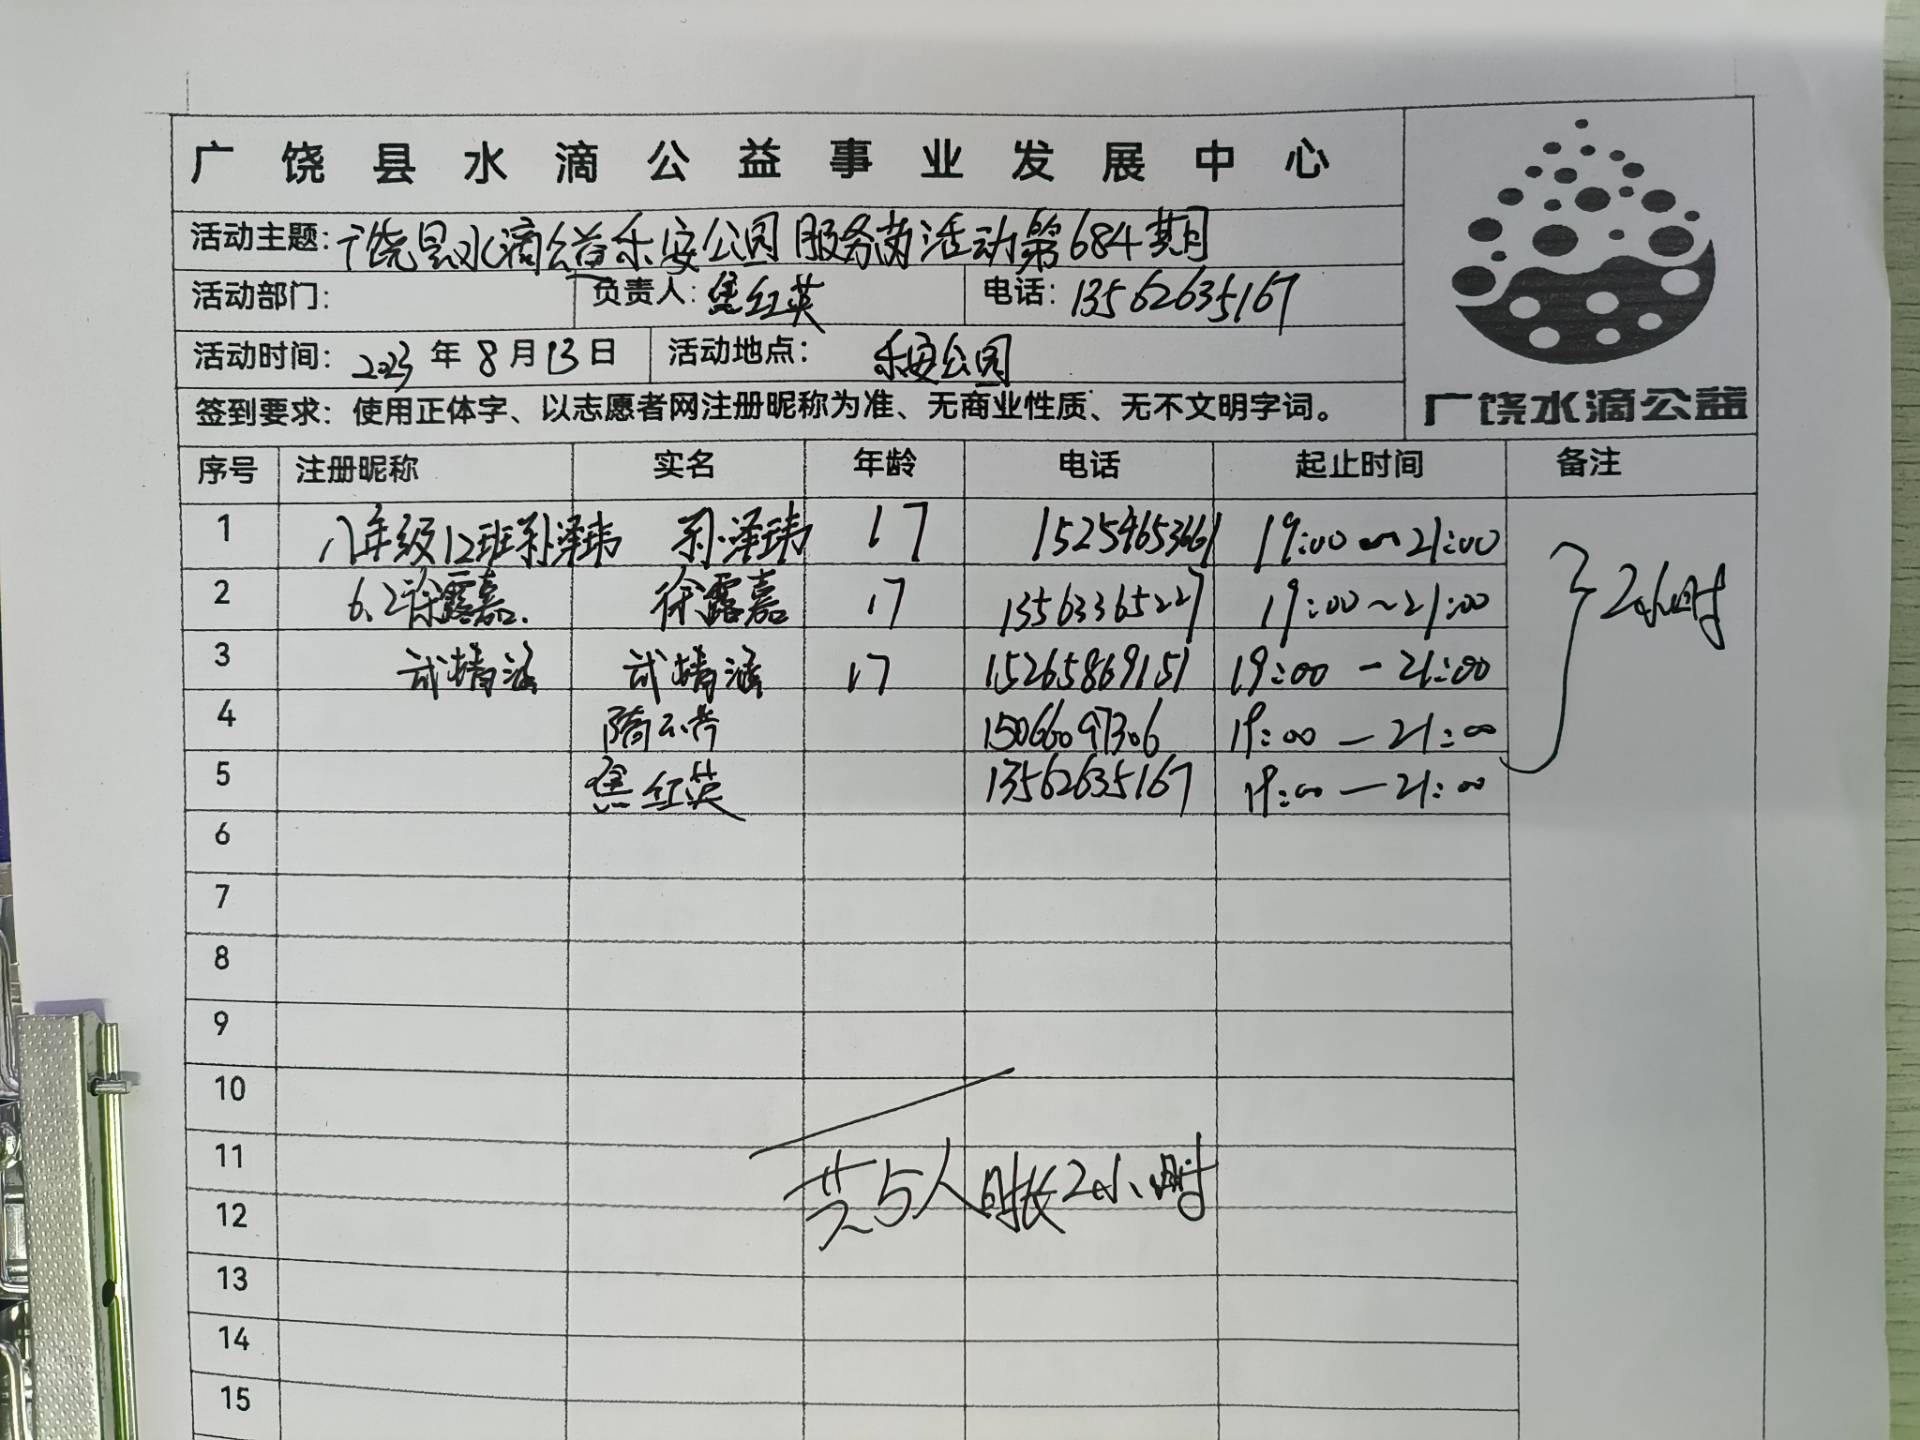 广饶县水滴公益事业发展中心
活动主题:广饶县水滴公益乐安公园服务岗活动第684期
活动部门: 负责人:焦红英 电话:13562635167
活动时间:2023年8月13日 活动地点: 乐安公园
签到要求:使用正体字、以志愿者网注册昵称为准、无商业性质、无不文明字词。
广饶水滴公益
序号 注册昵称 实名 年龄 电话 起止时间 备注
1 八年级12班孙泽玮 孙泽玮 17 15254653661 19:00~21:00
2 6.2徐露嘉. 徐露嘉 17 13563365227 19:00~21:00 2小时
3 婧涵 婧涵 17 15265869151 19:00-21:00
4 隋 15066097306 19:00-21:00
5 焦红英 13562635167 19:00-21:00
6
7
8
9
10
11
共5人时长2小时
12
13
14
15